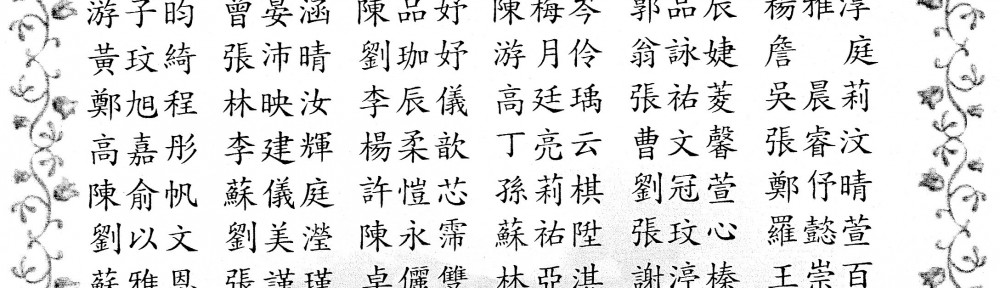 游子昀 曾晏涵 陳品妤 陳梅岑 郭品辰 楊雅淳
黃玟綺 張沛晴 劉珈妤 游月伶 翁詠婕 詹 庭
鄭旭程 林映汝 李辰儀 高廷瑀 張祐菱 吳晨莉
高嘉彤 李建輝 楊柔歆 丁亮云 曹文馨 張睿汶
陳俞帆 蘇儀庭 許愷芯 孫莉棋 劉冠萱 鄭伃晴
劉以文 劉美瀅 陳永霈 蘇祐陞 張玟心 羅懿萱
蘇雅恩 張謹瑾 卓儷雙 林亞淇 謝渟榛 王崇百